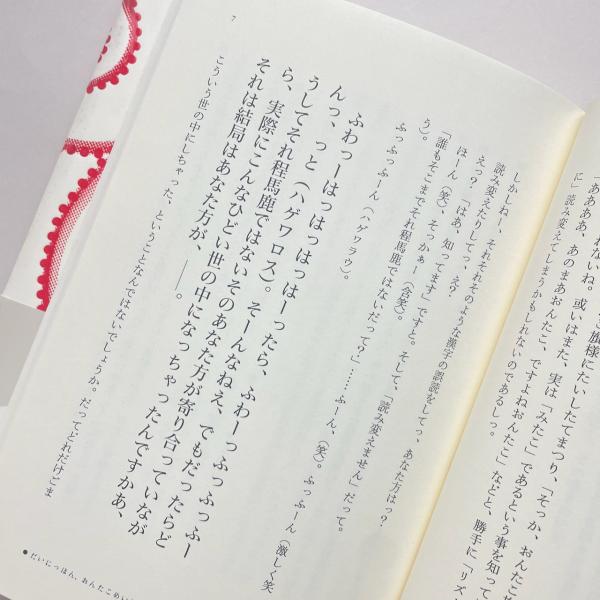 ご旗様にたいしたてまつり、「そっか、おんたこ
れないね。或いはまた、実は「みたこ」であるという事を知って
「ああああ、あのまあおんたこ、ですよねおんたこ」などと、勝手に「リズ
に」読み変えてしまうかもしれないのであるしっ。
しかしねー、それそれそのような漢字の誤読をしてっ、あなた方はっ?
読み変えたりしてっ、え?
えっ?「はあ、知ってます」ですと。そして、「読み変えません」だって。
ほーん(笑)、そっかぁー(含笑)。
「誰もそこまでそれ程馬鹿ではないだって?」……ふーん、(笑)。ふっふーん(激しく笑
う)。
ふっふっふーん(ハゲワラウ)。
ふわっーはっはっはっはーったら、ふわーっふっふっふー
んっ、っと(ハゲワロス)。そーんなねえ、でもだったらど
うしてそれ程馬鹿ではないそのあなた方が寄り合っていなが
ら、実際にこんなひどい世の中になっちゃったんですかあ、
それは結局はあなた方が、――。
こういう世の中にしちゃった、ということなんではないでしょうか。だってどれだけごま
7
●だいにっほん、おんたこめい